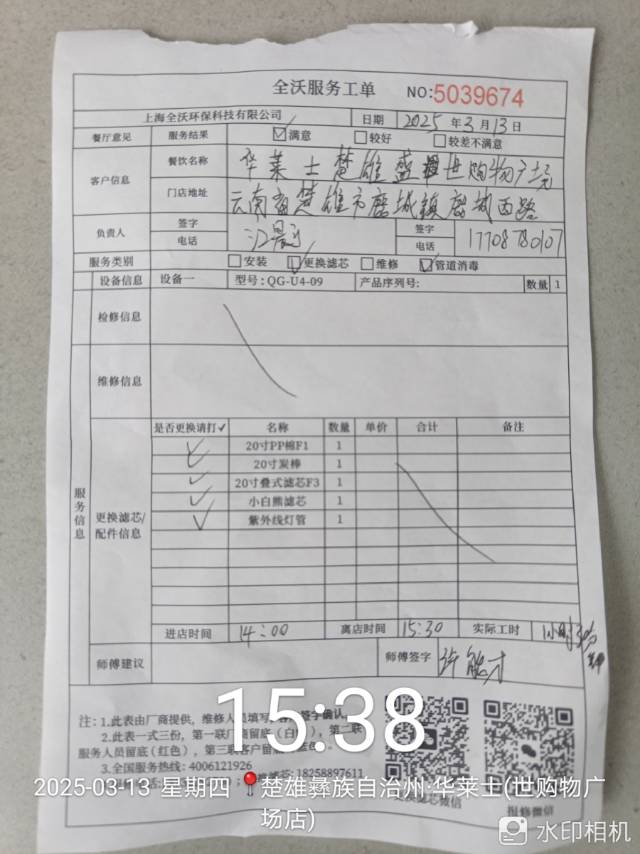 全沃服务工单 NO:5039674
上海全沃环保科技有限公司 日期 2025年3月13日
餐厅意见 服务结果 满意 较好 较差不满意
客户信息 餐饮名称 华莱士楚雄 世购物广场
门店地址 云南省楚雄市鹿城镇鹿城西路
负责人 签字 签字
电话 电话 17708780107
服务类别 安装 更换滤芯 维修 管道消毒
设备信息 设备一 型号:QG-U4-09 产品序列号: 数量 1
检修信息
维修信息
服务信息
更换滤芯/配件信息
是否更换请打✓ 名称 数量 单价 合计 备注
✓ 20寸PP棉F1 1
✓ 20寸炭棒 1
✓ 20寸叠式滤芯F3 1
✓ 小白熊滤芯 1
✓ 紫外线灯管 1
进店时间 14:00 离店时间 15:30 实际工时
师傅建议 师傅签字
注：1.此表由厂商提供，维修人员填写，客户签字确认。
2.此表一式三份，第一联厂商留底(白色)，第二联
服务人员留底(红色)，第三联客户留底
3.全国服务热线:4006121926
18258897611
15:38
2025-03-13 星期四 楚雄彝族自治州·华莱士(世购物广
场店)
报修微信
水印相机